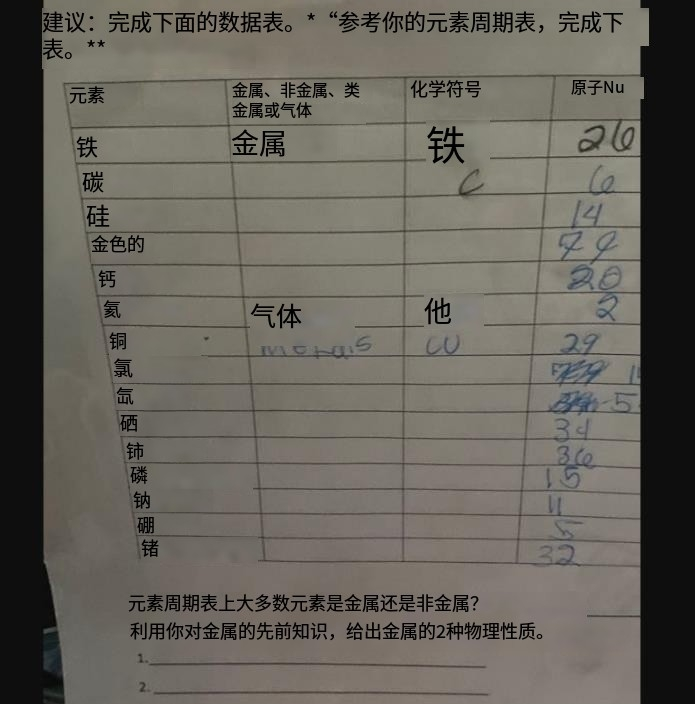 建议：完成下面的数据表。*“参考你的元素周期表，完成下
表。**
元素 金属、非金属、类 化学符号 原子Nu
金属或气体
铁 金属 铁 26
碳 C 6
硅 14
金色的 79
钙 20
氦 气体 他 2
铜 CU 29
氯
氙
硒 34
铈 36
磷 15
钠 11
硼 5
锗 32
元素周期表上大多数元素是金属还是非金属？
利用你对金属的先前知识，给出金属的2种物理性质。
1.
2.